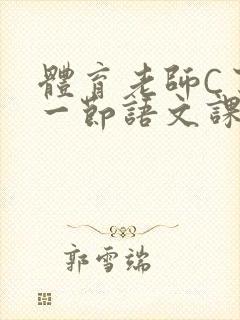 體育老師C
一節語文課
郭雪端